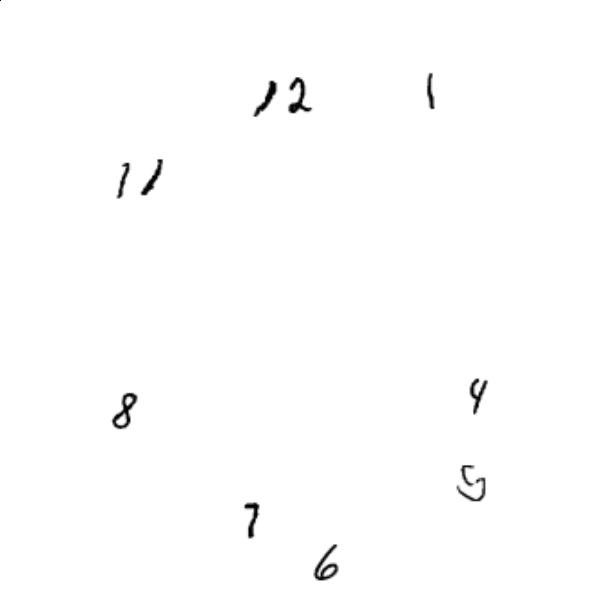 12 1
11
4
8
5
7
6